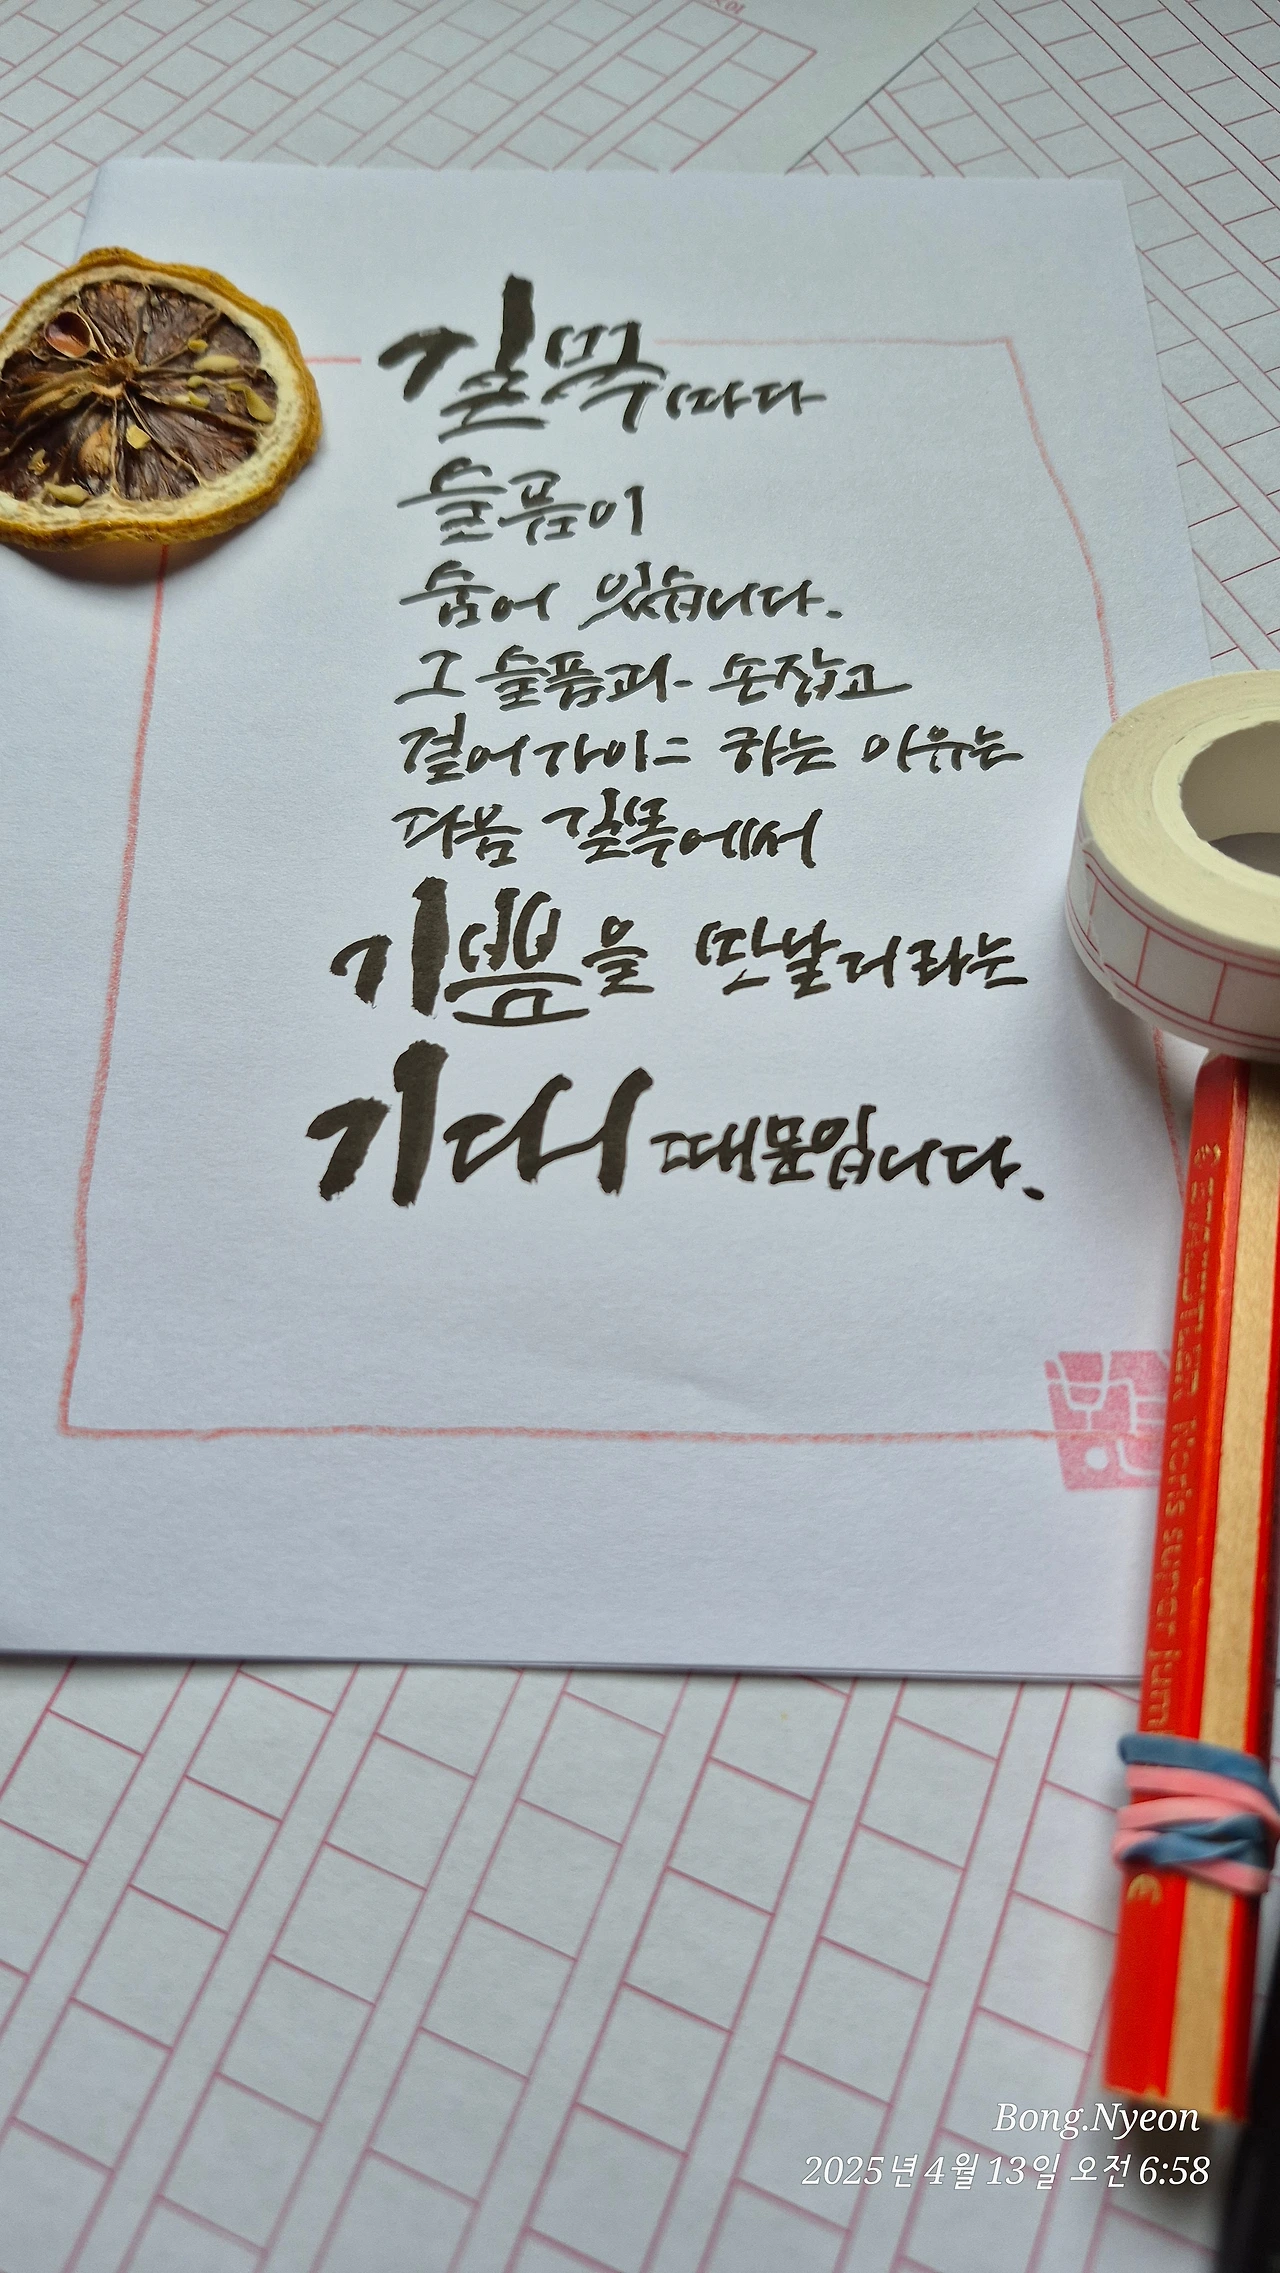 길목마다
슬픔이
숨어 있습니다.
그 슬픔과 손잡고
걸어가야만 하는 이유는
다음 길목에서
기쁨을 만날거라는
기대 때문입니다.
STAEDTLER Noris super jum
Bong.Nyeon
2025년 4월 13일 오전 6:58